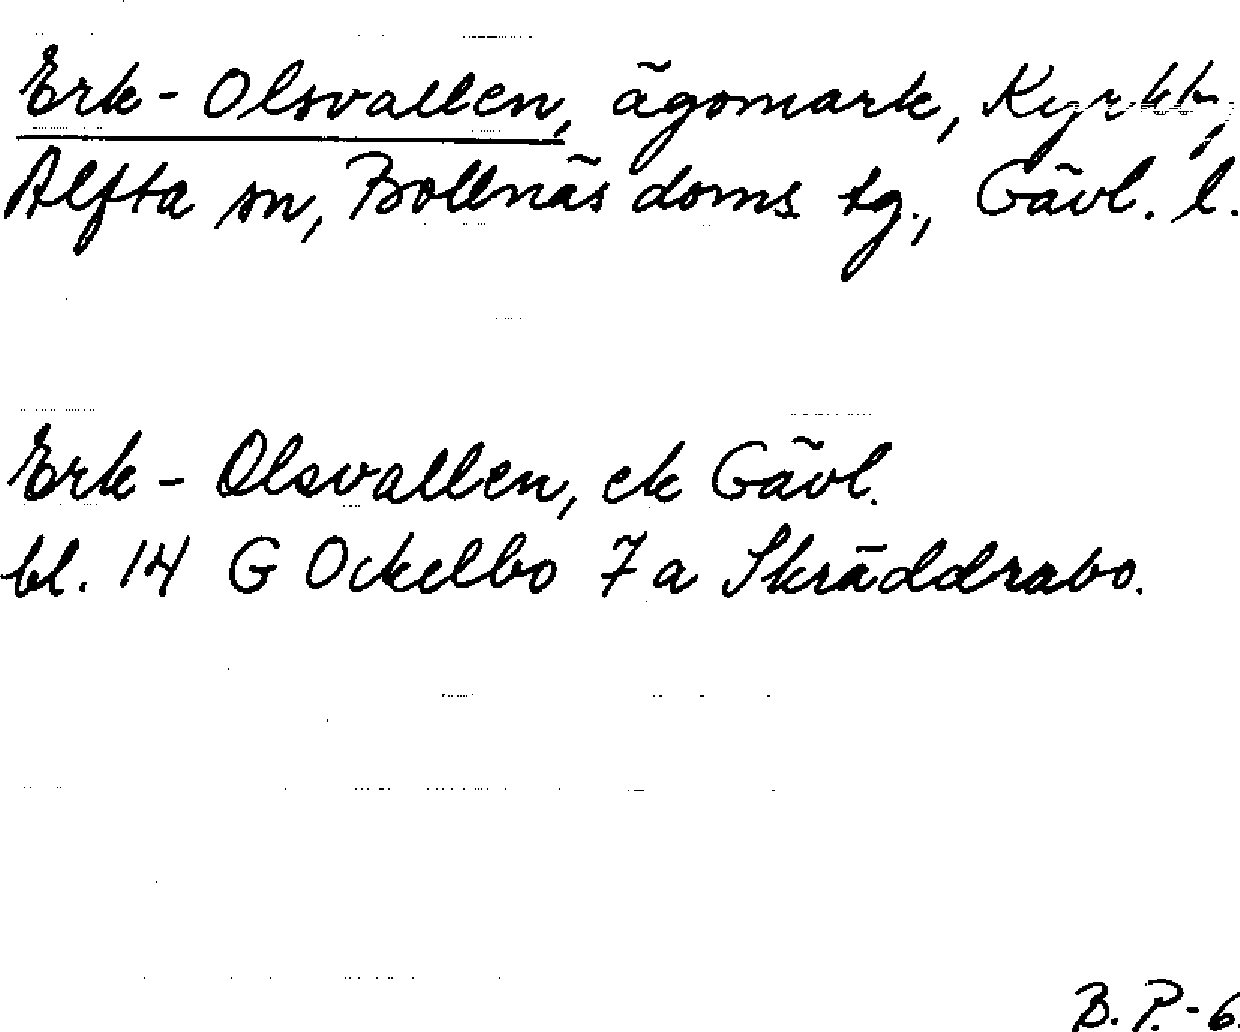 Erk-Olsvallen, ägomark, Kyrkb,
Alfta sn, Bollnäs doms tg., Gävl. l.
Erk-Olsvallen, ek Gävl.
bl. 14 G Ockelbo 7 a Skräddrabo.
B. P.-6